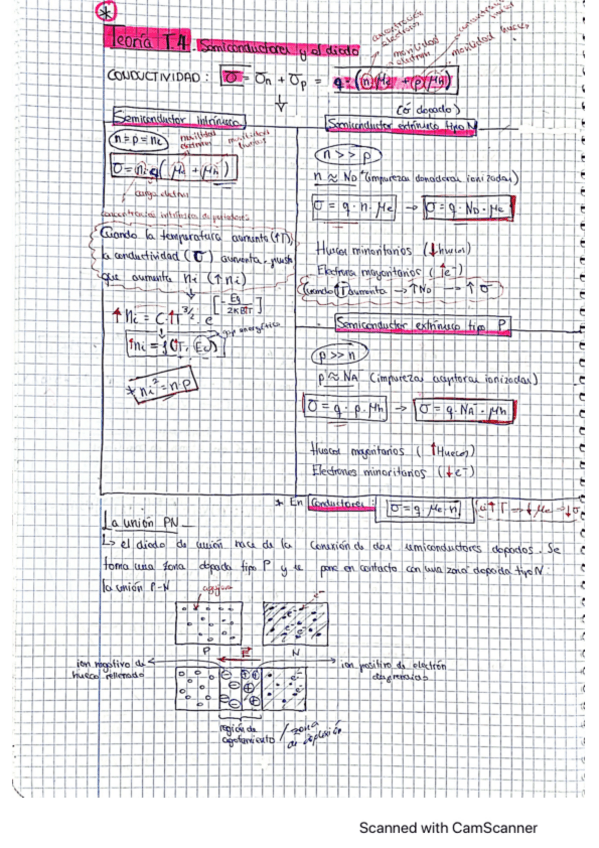 *
Teoría T.4. Semiconductores y el diodo
concentración electrones
movilidad electrón
concentración huecos
movilidad huecos
CONDUCTIVIDAD: σ = σn + σp = q·(n·μe + p·μh)
Semiconductor intrínseco
n = p = ni
movilidad electrones
movilidad huecos
σ = ni q (μe + μh)
carga electrón
concentración intrínseca de portadores
Cuando la temperatura aumenta (↑T)
la conductividad (σ) aumenta, puesto
que aumenta ni (↑ni)
↑ni = C·↑T^3/2 · e^[-EG/2KB↑T]
↑ni = f(↑T, EG)
gap energético
* ni² = n·p
(ó dopado)
Semiconductor extrínseco tipo N
n >> p
n ≈ ND⁺ (impurezas donadoras ionizadas)
σ = q · n · μe → σ = q · ND · μe
Huecos minoritarios (↓huecos)
Electrones mayoritarios (↑e⁻)
Cuando T aumenta → ↑ND → ↑σ
Semiconductor extrínseco tipo P
p >> n
p ≈ NA⁻ (impurezas aceptoras ionizadas)
σ = q · p · μh → σ = q · NA⁻ · μh
Huecos mayoritarios (↑Huecos)
Electrones minoritarios (↓e⁻)
* En Conductores: σ = q · μe · n
↑T → ↓μe → ↓σ
La unión PN
↳ el diodo de unión nace de la conexión de dos semiconductores dopados. Se
toma una zona dopada tipo P y se pone en contacto con una zona dopada tipo N:
la unión P-N
agujeros
e⁻
P
N
E
ion negativo de
hueco rellenado
ion positivo de electrón
desprendido
región de
agotamiento / zona
de deplexión
Scanned with CamScanner